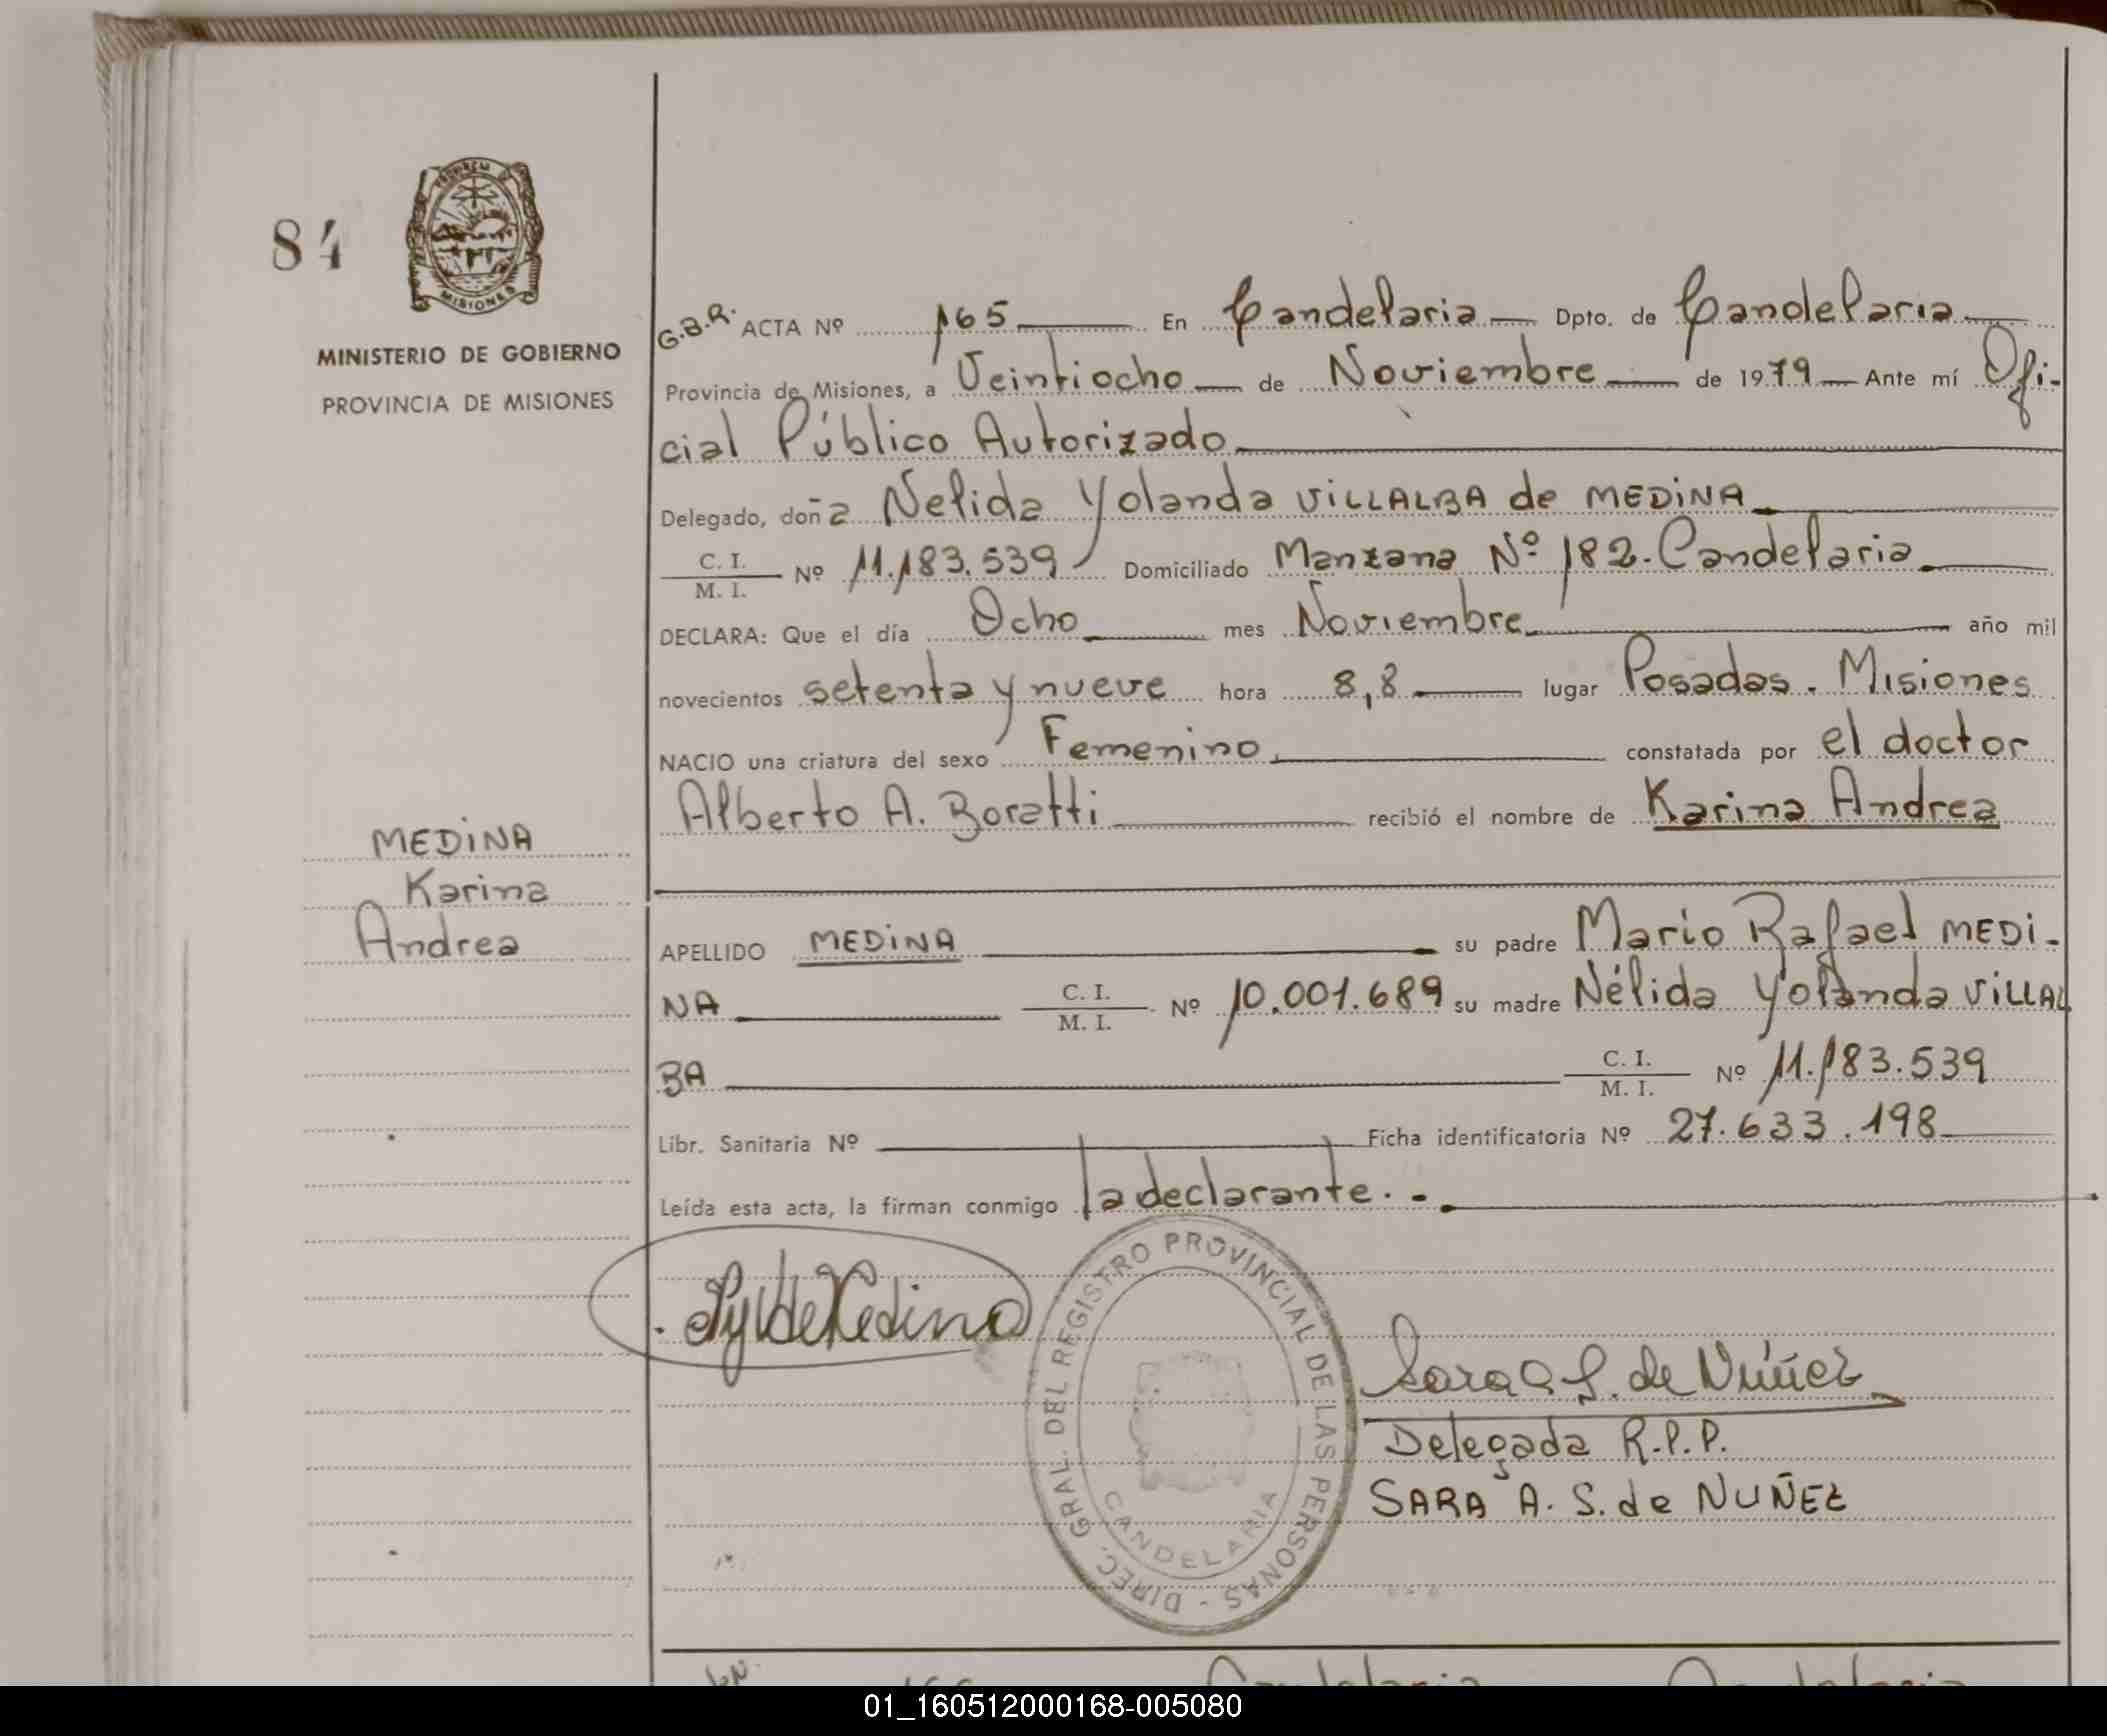 84
PROVINCIA
MISIONES
MINISTERIO DE GOBIERNO
PROVINCIA DE MISIONES
MEDINA
Karina
Andrea
G.B.R. ACTA Nº 165 En Candelaria Dpto. de Candelaria
Provincia de Misiones, a Veintiocho de Noviembre de 1979 Ante mí Ofi-
cial Público Autorizado
Delegado, doña Nelida Yolanda VILLALBA de MEDINA
C. I.
M. I. Nº 11.183.539 Domiciliado Manzana Nº 182. Candelaria
DECLARA: Que el día Ocho mes Noviembre año mil
novecientos setenta y nueve hora 8,8 lugar Posadas. Misiones
NACIO una criatura del sexo Femenino constatada por el doctor
Alberto A. Boratti recibió el nombre de Karina Andrea
APELLIDO MEDINA su padre Mario Rafael MEDI-
NA C. I. M. I. Nº 10.001.689 su madre Nélida Yolanda VILLAL
BA C. I. M. I. Nº 11.183.539
Libr. Sanitaria Nº Ficha identificatoria Nº 27.633.198
Leída esta acta, la firman conmigo la declarante.-
DIREC. GRAL. DEL REGISTRO PROVINCIAL DE LAS PERSONAS -
CANDELARIA
Sara A S. de Núñez
Delegada R.P.P.
SARA A. S. de NUÑEZ
01_160512000168-005080